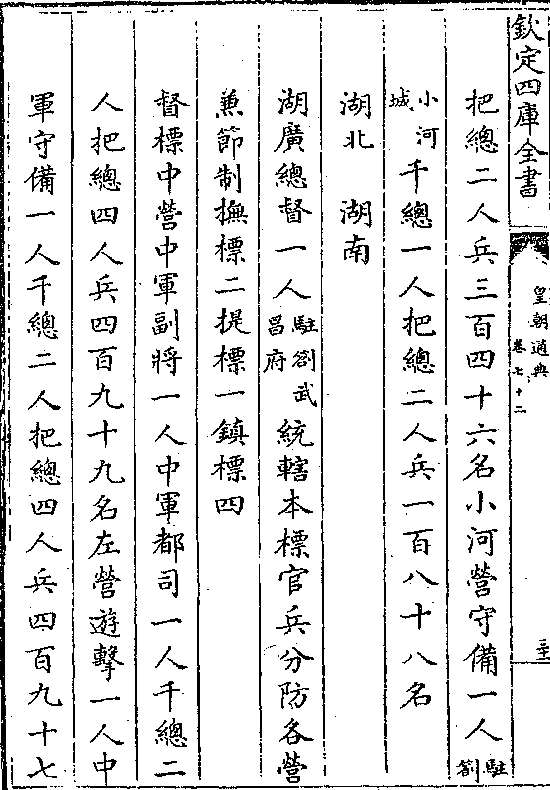 欽定四庫全書
皇朝通典
卷七十二
三十二
把總二人兵三百四十六名小河營守備一人駐劄
小河城千總一人把總二人兵一百八十八名
湖北　湖南
湖廣總督一人駐劄武昌府統轄本標官兵分防各營
兼節制撫標二提標一鎮標四
督標中營中軍副將一人中軍都司一人千總二
人把總四人兵四百九十九名左營遊擊一人中
軍守備一人千總二人把總四人兵四百九十七